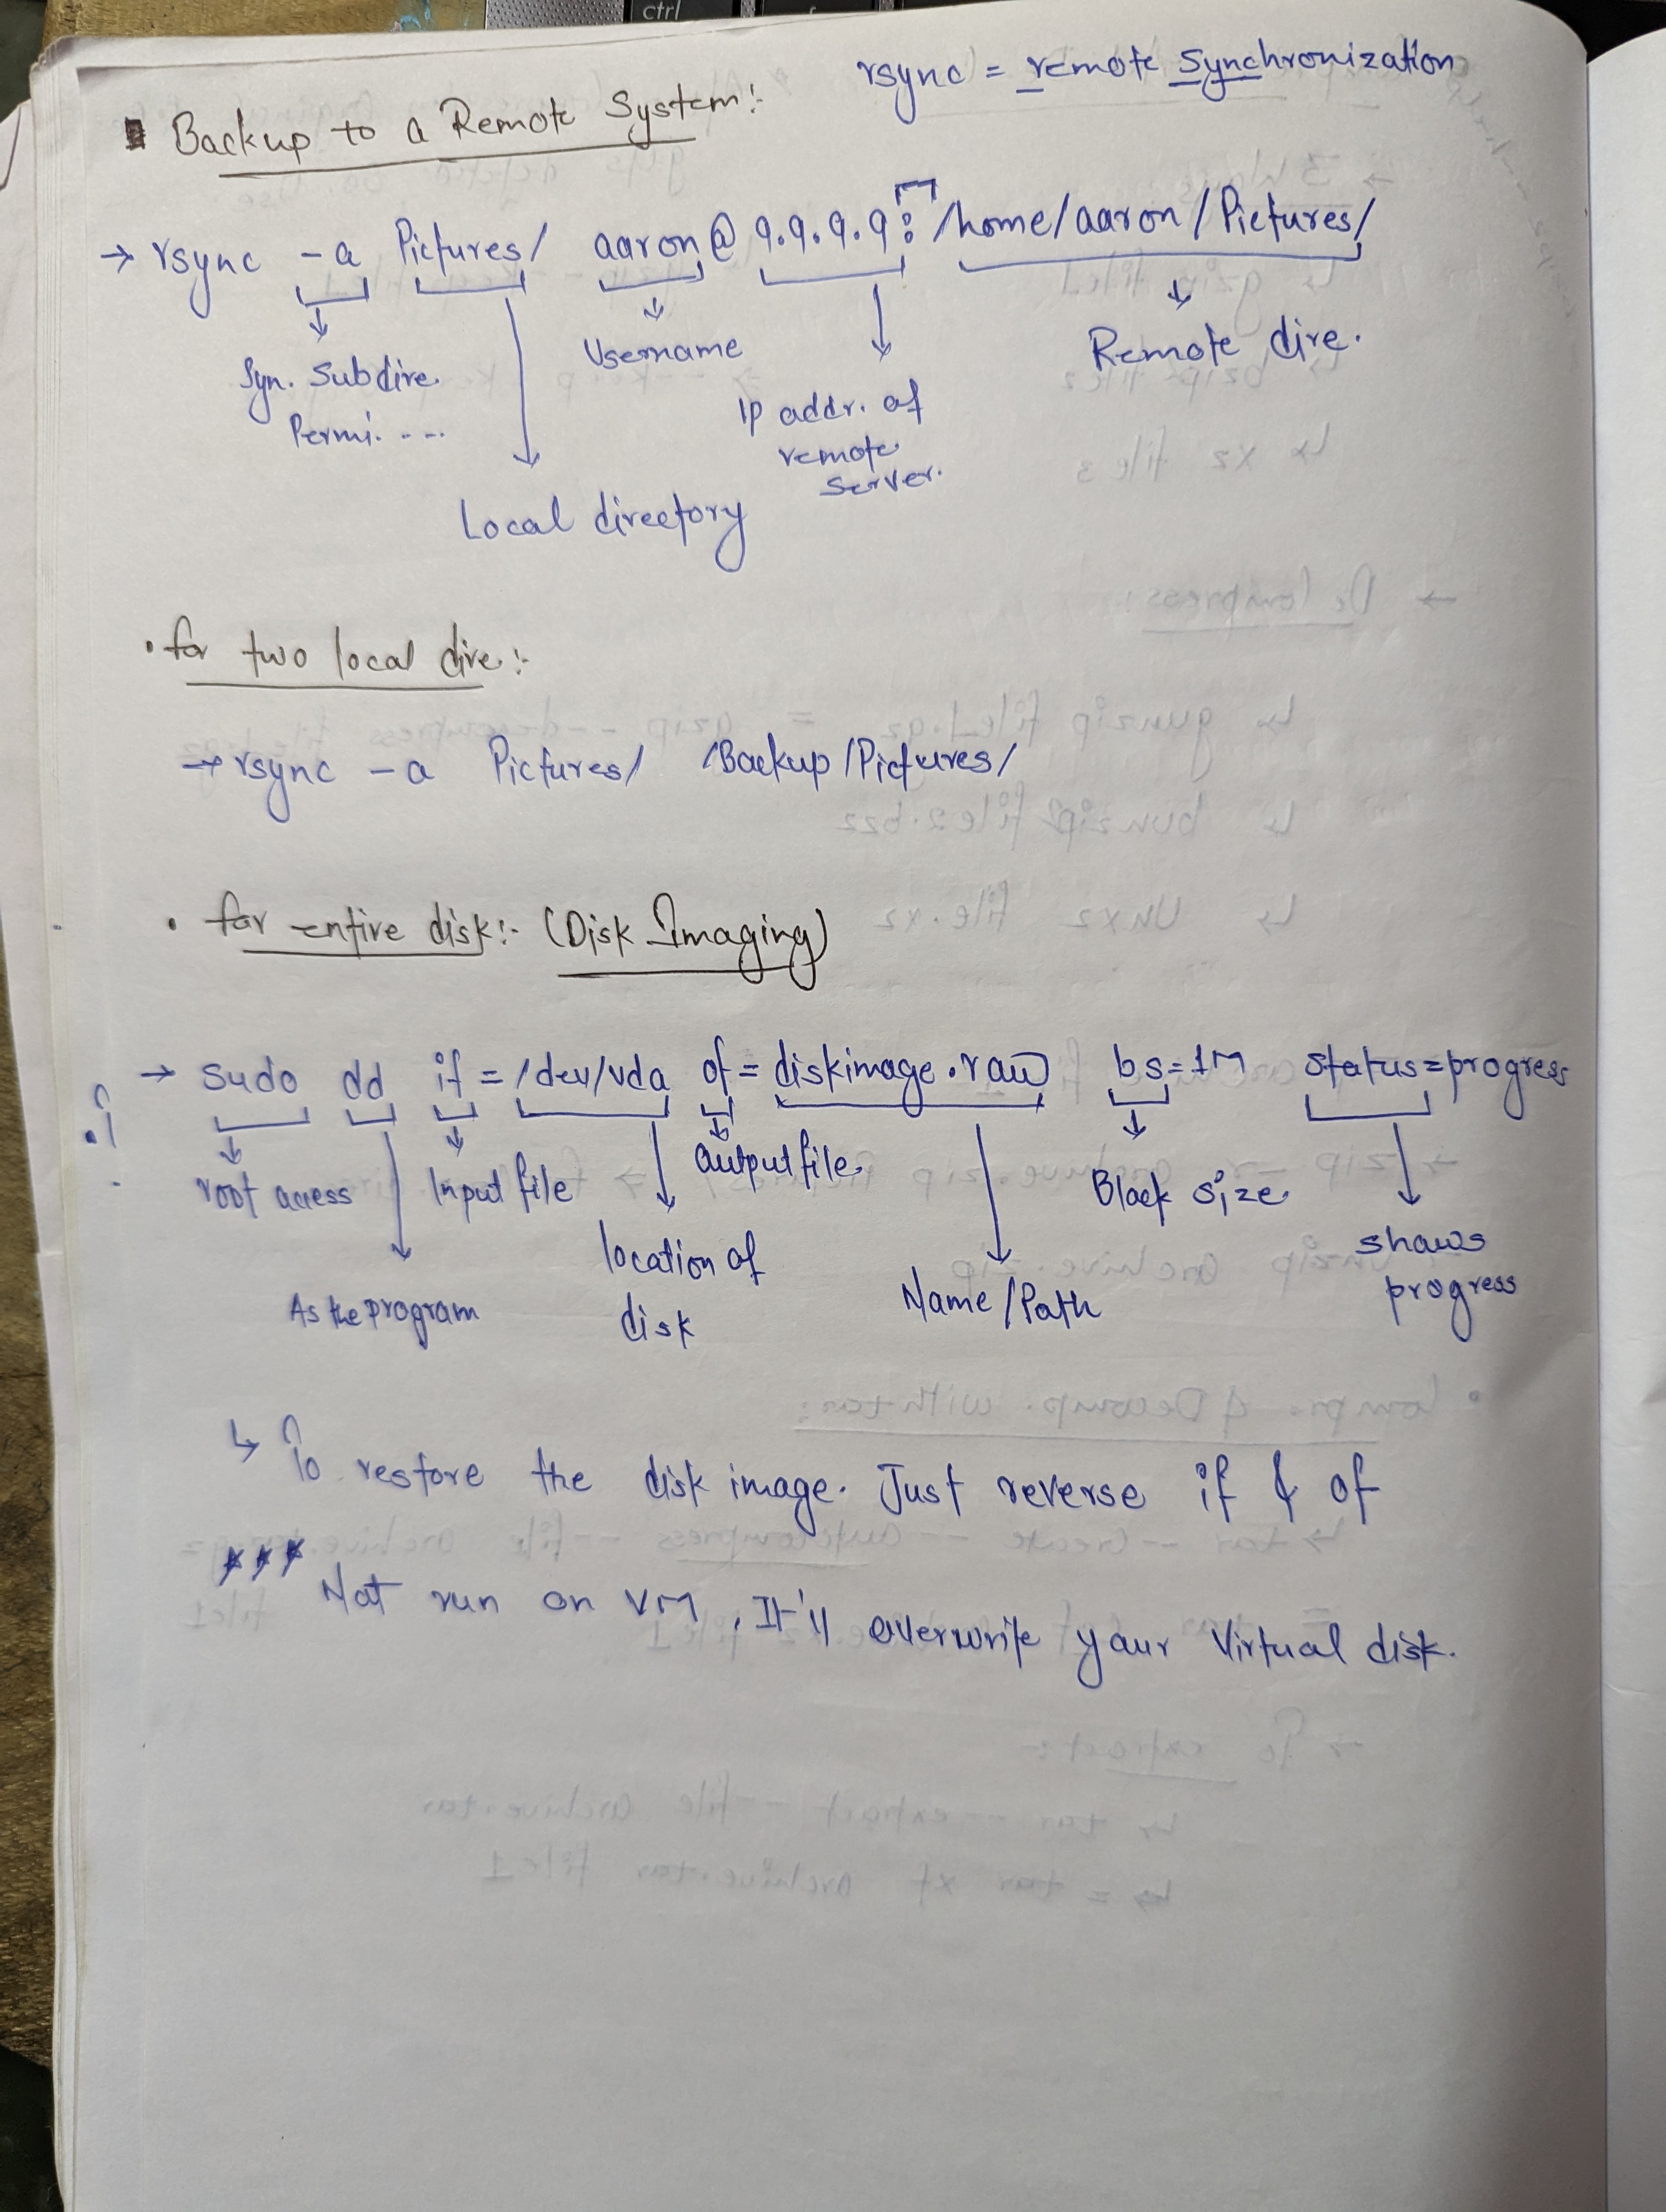 ctrl
rsync = remote synchronization
Backup to a Remote System:-
→ rsync -a Pictures/ aaron@9.9.9.9:/home/aaron/Pictures/
Syn. Subdire. Permi. ...
Local directory
Username
IP addr. of remote server.
Remote dire.
• for two local dire.:-
→ rsync -a Pictures/ /Backup/Pictures/
• for entire disk:- (Disk Imaging)
→ sudo dd if=/dev/vda of=diskimage.raw bs=1M status=progress
root access
As the program
Input file
location of disk
output file.
Name/Path
Block size
shows progress
↳ To restore the disk image. Just reverse if & of
*** Not run on VM, It'll overwrite your Virtual disk.